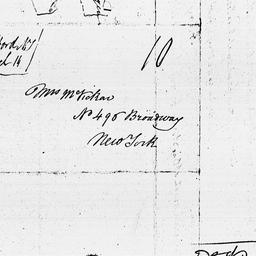 10
Mrs McVickar
No 496 Broadway
New York